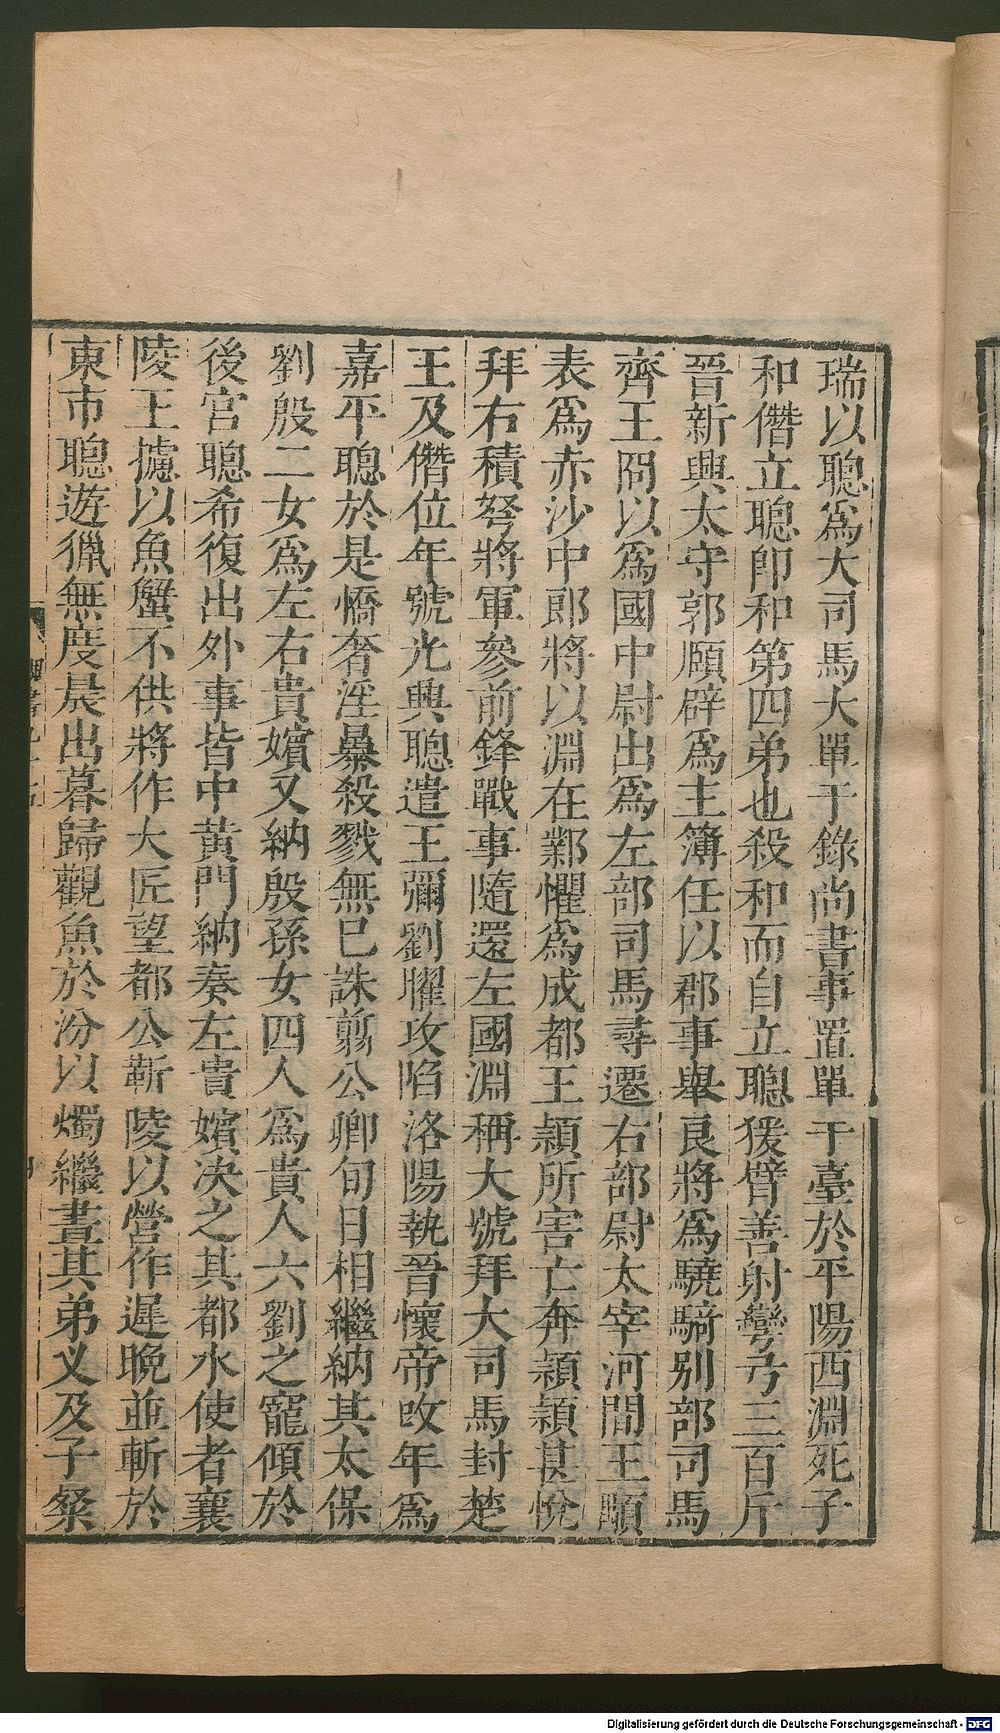 瑞以聰爲大司馬大單于錄尚書事置單于臺於平陽西淵死子
和僭立聰即和第四弟也殺和而自立聰猨臂善射彎弓三百斤
晉新興太守郭頤辟爲主簿任以郡事舉良將爲驍騎别部司馬
齊王冏以爲國中尉出爲左部司馬尋遷右部尉太宰河間王顒
表爲赤沙中郎將以淵在鄴懼爲成都王穎所害亡奔穎穎甚悅
拜右積弩將軍參前鋒戰事隨還左國淵稱大號拜大司馬封楚
王及僭位年號光興聰遣王彌劉曜攻陷洛陽執晉懷帝改年爲
嘉平聰於是憍奢淫暴殺戮無已誅翦公卿旬日相繼納其太保
劉殷二女爲左右貴嬪又納殷孫女四人爲貴人六劉之寵傾於
後宮聰希復出外事皆中黃門納奏左貴嬪決之其都水使者襄
陵王攄以魚蟹不供將作大匠望都公靳陵以營作遲晚並斬於
東市聰遊獵無度晨出暮歸觀魚於汾以燭繼晝其弟乂及子粲
Digitalisierung gefördert durch die Deutsche Forschungsgemeinschaft - DFG